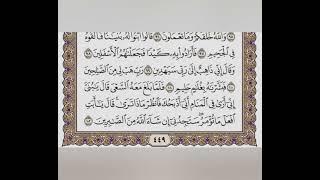 وَٱللَّهُ خَلَقَكُمْ وَمَا تَعْمَلُونَ ۝٩٦ قَالُوا۟ ٱبْنُوا۟ لَهُۥ بُنْيَـٰنًا فَأَلْقُوهُ
فِى ٱلْجَحِيمِ ۝٩٧ فَأَرَادُوا۟ بِهِۦ كَيْدًا فَجَعَلْنَـٰهُمُ ٱلْأَسْفَلِينَ ۝٩٨
وَقَالَ إِنِّى ذَاهِبٌ إِلَىٰ رَبِّى سَيَهْدِينِ ۝٩٩ رَبِّ هَبْ لِى مِنَ ٱلصَّـٰلِحِينَ
۝١٠٠ فَبَشَّرْنَـٰهُ بِغُلَـٰمٍ حَلِيمٍ ۝١٠١ فَلَمَّا بَلَغَ مَعَهُ ٱلسَّعْىَ قَالَ يَـٰبُنَىَّ
إِنِّىٓ أَرَىٰ فِى ٱلْمَنَامِ أَنِّىٓ أَذْبَحُكَ فَٱنظُرْ مَاذَا تَرَىٰ ۚ قَالَ يَـٰٓأَبَتِ
ٱفْعَلْ مَا تُؤْمَرُ ۖ سَتَجِدُنِىٓ إِن شَآءَ ٱللَّهُ مِنَ ٱلصَّـٰبِرِينَ ۝١٠٢
٤٤٩